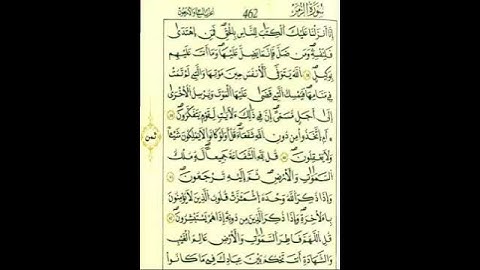 سُورَةُ الزُّمَرِ
462
إِنَّا أَنزَلْنَا عَلَيْكَ الْكِتَٰبَ لِلنَّاسِ بِالْحَقِّ فَمَنِ اهْتَدَىٰ
فَلِنَفْسِهِۦ وَمَن ضَلَّ فَإِنَّمَا يَضِلُّ عَلَيْهَا وَمَا أَنتَ عَلَيْهِم
بِوَكِيلٍ اللَّهُ يَتَوَفَّى الْأَنفُسَ حِينَ مَوْتِهَا وَالَّتِي لَمْ تَمُتْ
فِي مَنَامِهَا فَيُمْسِكُ الَّتِي قَضَىٰ عَلَيْهَا الْمَوْتَ وَيُرْسِلُ الْأُخْرَىٰ
إِلَىٰ أَجَلٍ مُّسَمًّى إِنَّ فِي ذَٰلِكَ لَآيَٰتٍ لِّقَوْمٍ يَتَفَكَّرُونَ
أَمِ اتَّخَذُوا مِن دُونِ اللَّهِ شُفَعَاءَ قُلْ أَوَلَوْ كَانُوا لَا يَمْلِكُونَ شَيْئًا
ثمن
وَلَا يَعْقِلُونَ قُل لِّلَّهِ الشَّفَٰعَةُ جَمِيعًا لَّهُ مُلْكُ
السَّمَٰوَٰتِ وَالْأَرْضِ ثُمَّ إِلَيْهِ تُرْجَعُونَ
وَإِذَا ذُكِرَ اللَّهُ وَحْدَهُ اشْمَأَزَّتْ قُلُوبُ الَّذِينَ لَا يُؤْمِنُونَ
بِالْآخِرَةِ وَإِذَا ذُكِرَ الَّذِينَ مِن دُونِهِۦ إِذَا هُمْ يَسْتَبْشِرُونَ
قُلِ اللَّهُمَّ فَاطِرَ السَّمَٰوَٰتِ وَالْأَرْضِ عَٰلِمَ الْغَيْبِ
وَالشَّهَٰدَةِ أَنتَ تَحْكُمُ بَيْنَ عِبَادِكَ فِي مَا كَانُوا